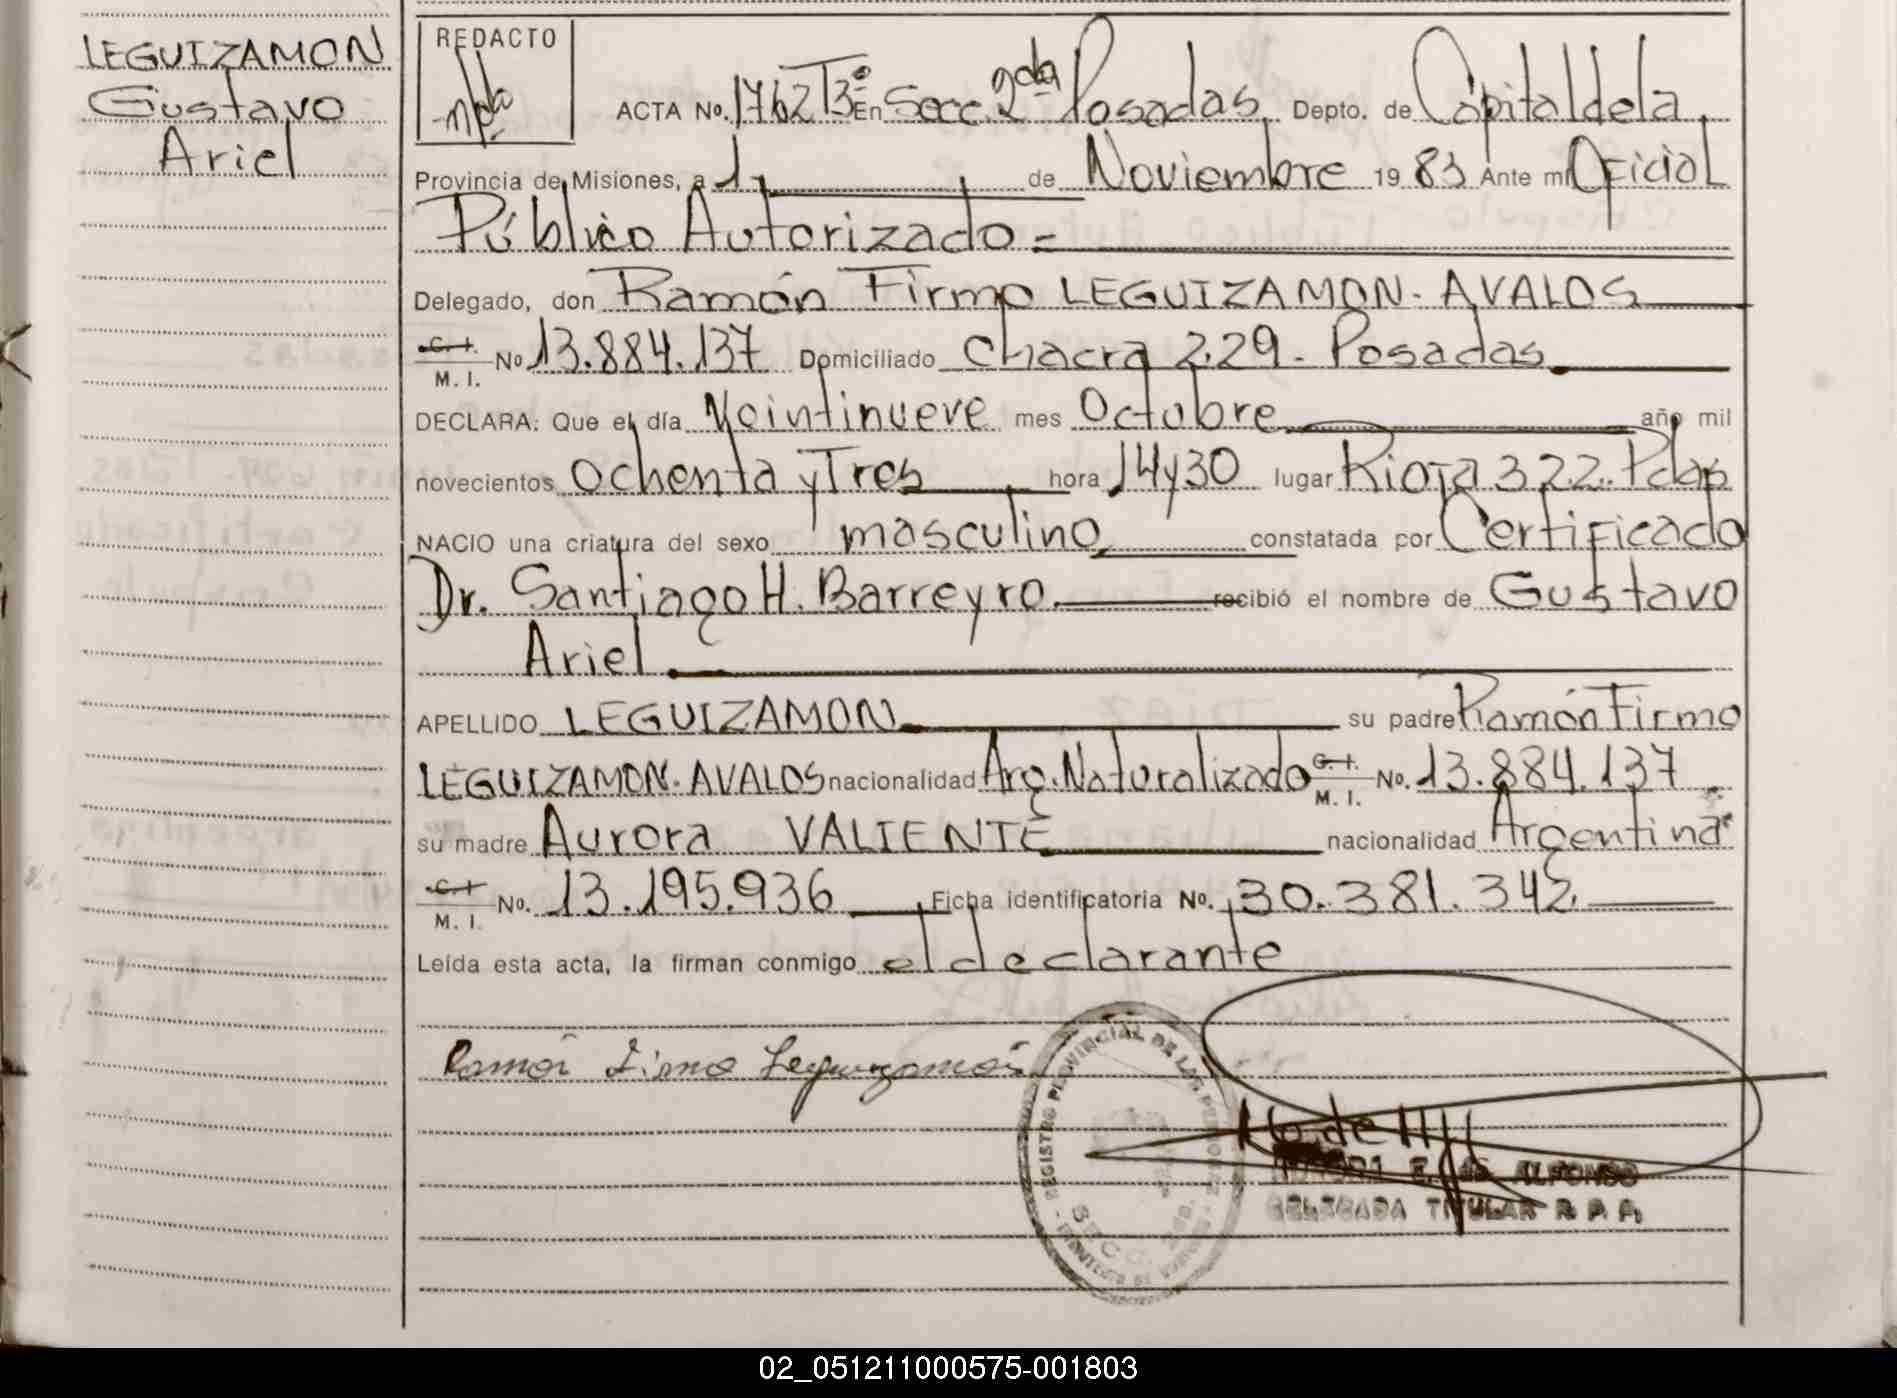 LEGUIZAMON
Gustavo
Ariel
REDACTO
ACTA No. 1762 T3º En Secc. 2da Posadas Depto. de Capital de la
Provincia de Misiones, a 1 de Noviembre 1983 Ante mi Oficial
Público Autorizado =
Delegado, don Ramón Firmo LEGUIZAMON - AVALOS
C. I. M. I. Nº 13.884.137 Domiciliado Chacra 229 - Posadas
DECLARA: Que el día Veintinueve mes Octubre año mil
novecientos ochenta y Tres hora 14y30 lugar Rioja 322. Pdas
NACIO una criatura del sexo masculino constatada por Certificado
Dr. Santiago H. Barreyro. recibió el nombre de Gustavo
Ariel
APELLIDO LEGUIZAMON su padre Ramón Firmo
LEGUIZAMON - AVALOS nacionalidad Arg. Naturalizado C. I. M. I. No. 13.884.137
su madre Aurora VALIENTE nacionalidad Argentina
C. I. M. I. No. 13.195.936 Ficha identificatoria No. 30.381.342
Leída esta acta, la firman conmigo el declarante
Ramón Firmo Leguizamón
REGISTRO PROVINCIAL DE LAS PERSONAS
SECC. 2da.
E. de ALFONSO
DELEGADA TITULAR R. P. P.
02_051211000575-001803